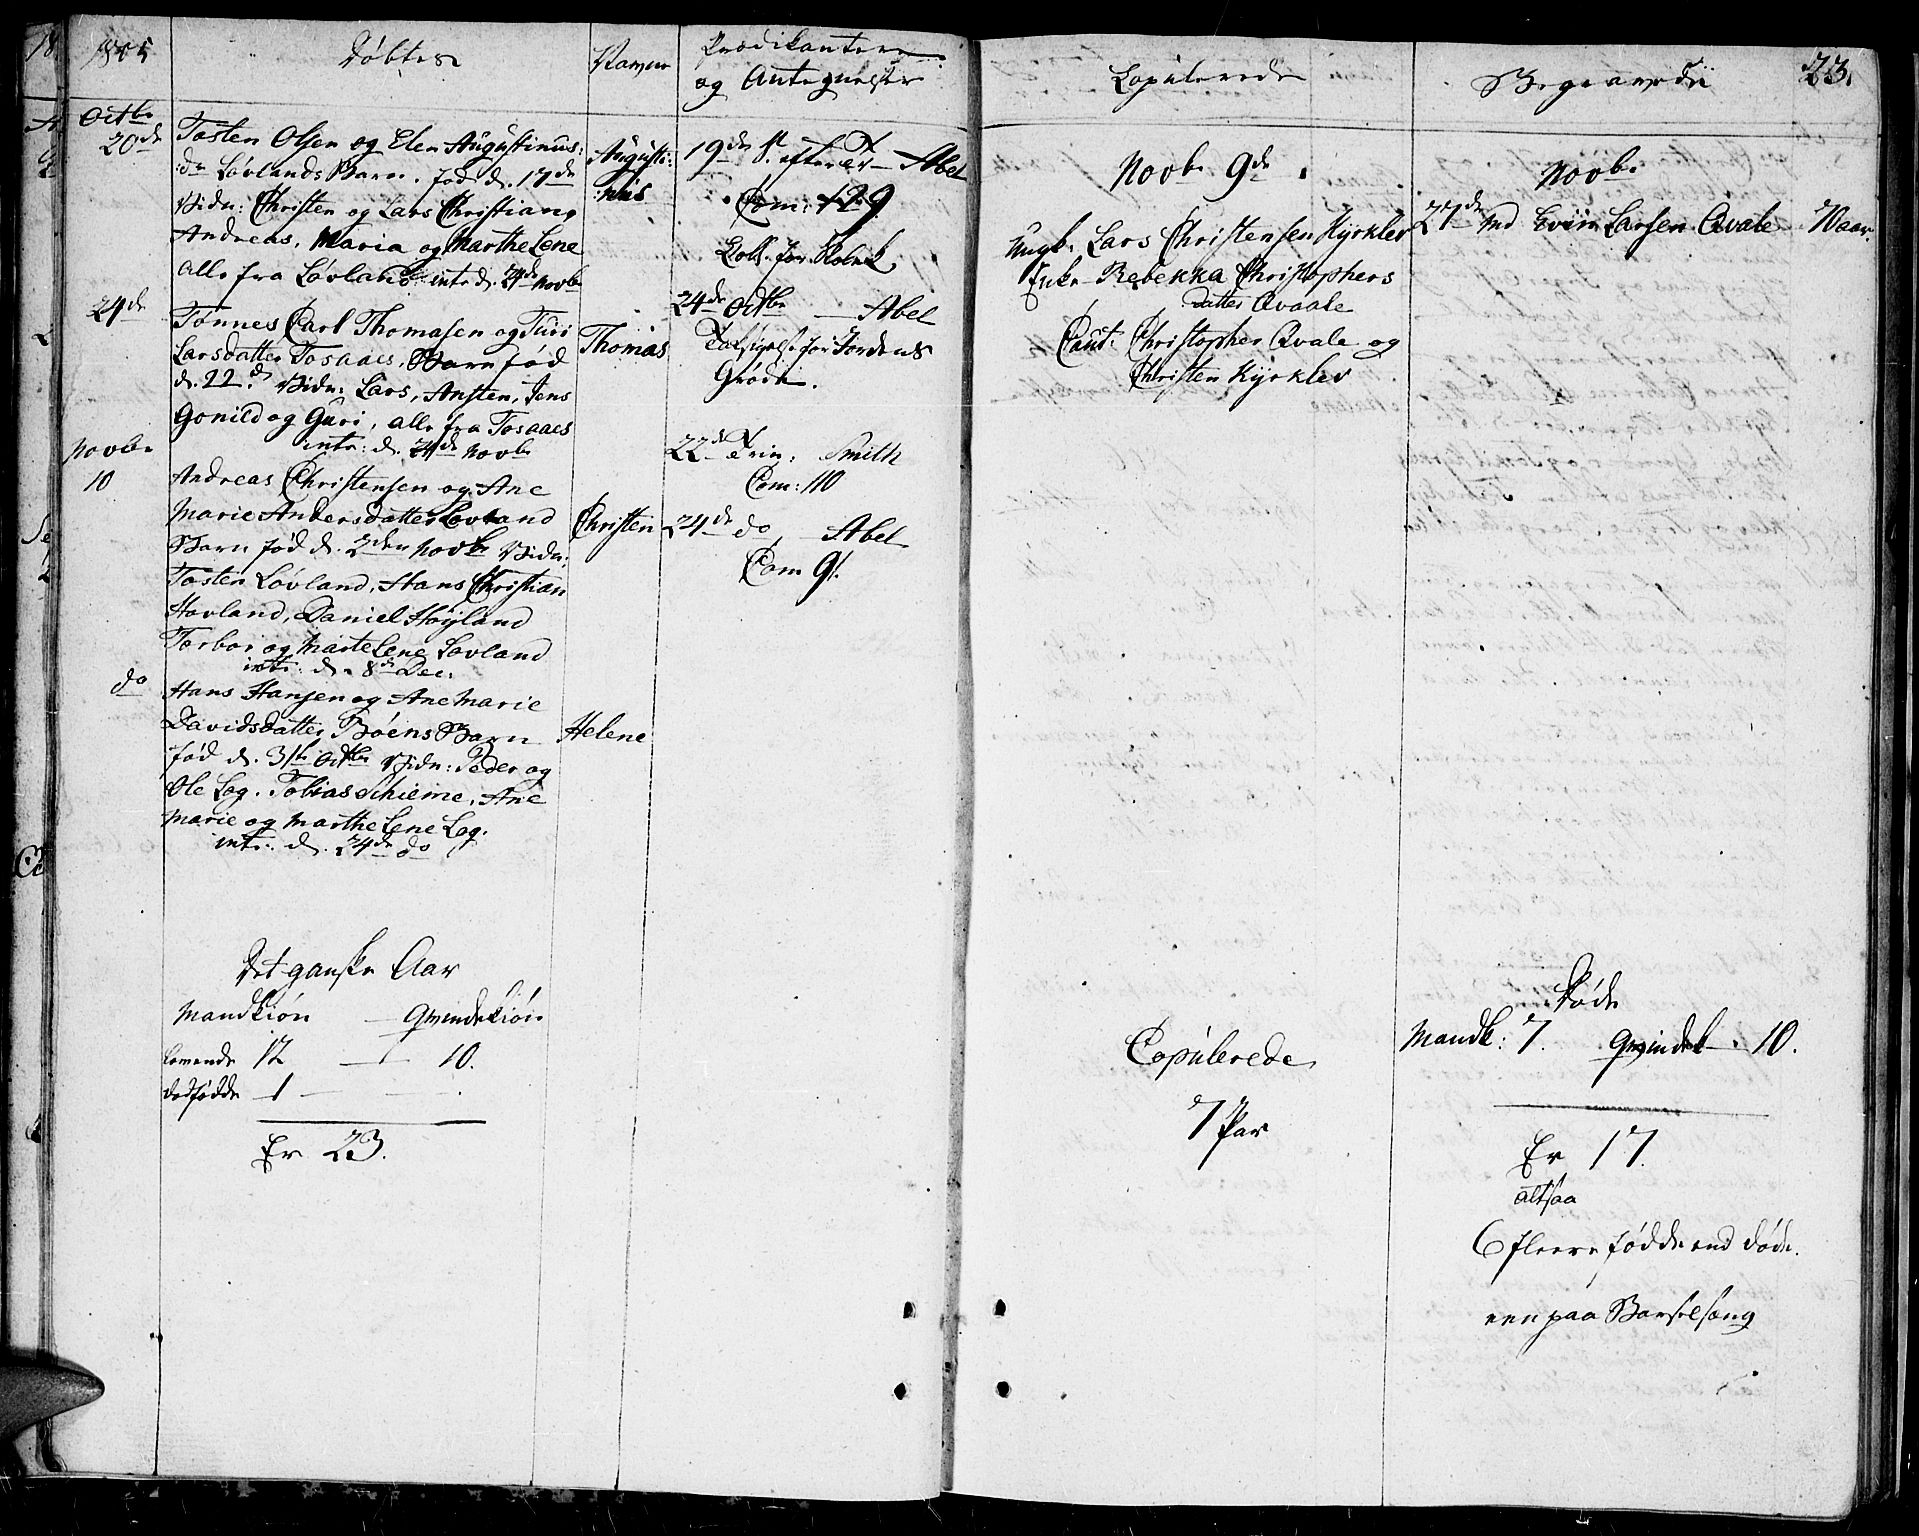 1805
Døbte
Navne
Prædikantere
og Antegnelser
Octbr
20de
Tosten Olsen og Elen Augustinus:
:dr Løvlands Barn. fød d. 17de
Vidn: Christen og Lars Christian,
Andreas, Maria og Marthe Lene
alle fra Løvland intr d. 24de Novbr
Augusti:
:nus
19de S. efter Tr — Abel
Com: 129
24de
Tønnes Carl Thomasen og Turi
Larsdatter Tosaaes, Barn fød
d. 22.d Vidn: Lars, Ansten, Jens
Gonild og Guri, alle fra Tosaaes
intr: d. 24de Novbr
Thomas
24de Octbr — Abel
Taksigelse for Jordens
Grøde.
Novbr
10
Andreas Christensen og Ane
Marie Andersdatter Lovland
Barn fød d. 2den Novbr Vidn:
Tosten Løvland, Hans Christian
Hovland, Daniel Høyland
Torbor og Marte Lene Lovland
intr: d. 8de Dec:
Christen
22de Trin: Smith
Com: 110
24de do — Abel
Com 91.
do
Hans Hansen og Ane Marie
Davidsdatter Bøens Barn
fød d. 31te Octbr Vidn: Peder og
Ole Log. Tobias Schieme, Ane
Marie og Marthe Lene Log.
intr: d. 24de do
Helene
Det ganske Aar
Mandkiøn — Qvindekiøn
Levende 12 — 10.
Dødfødde 1
Er 23.
Copulerede
Novbr 9de
Ungk. Lars Christensen Kyrklev
Enke Rebekka Christophers
datter Qvaale
Caut: Christopher Qvale og
Christen Kyrklev
Copulerede
7 Par
Begravede
23.
Novbr
27de Md Evin Larsen Qvale 70 aar
Døde
Mandk: 7. Qvindek 10.
Er 17.
altsaa
6 fleere fødde end døde.
een paa Barselseng